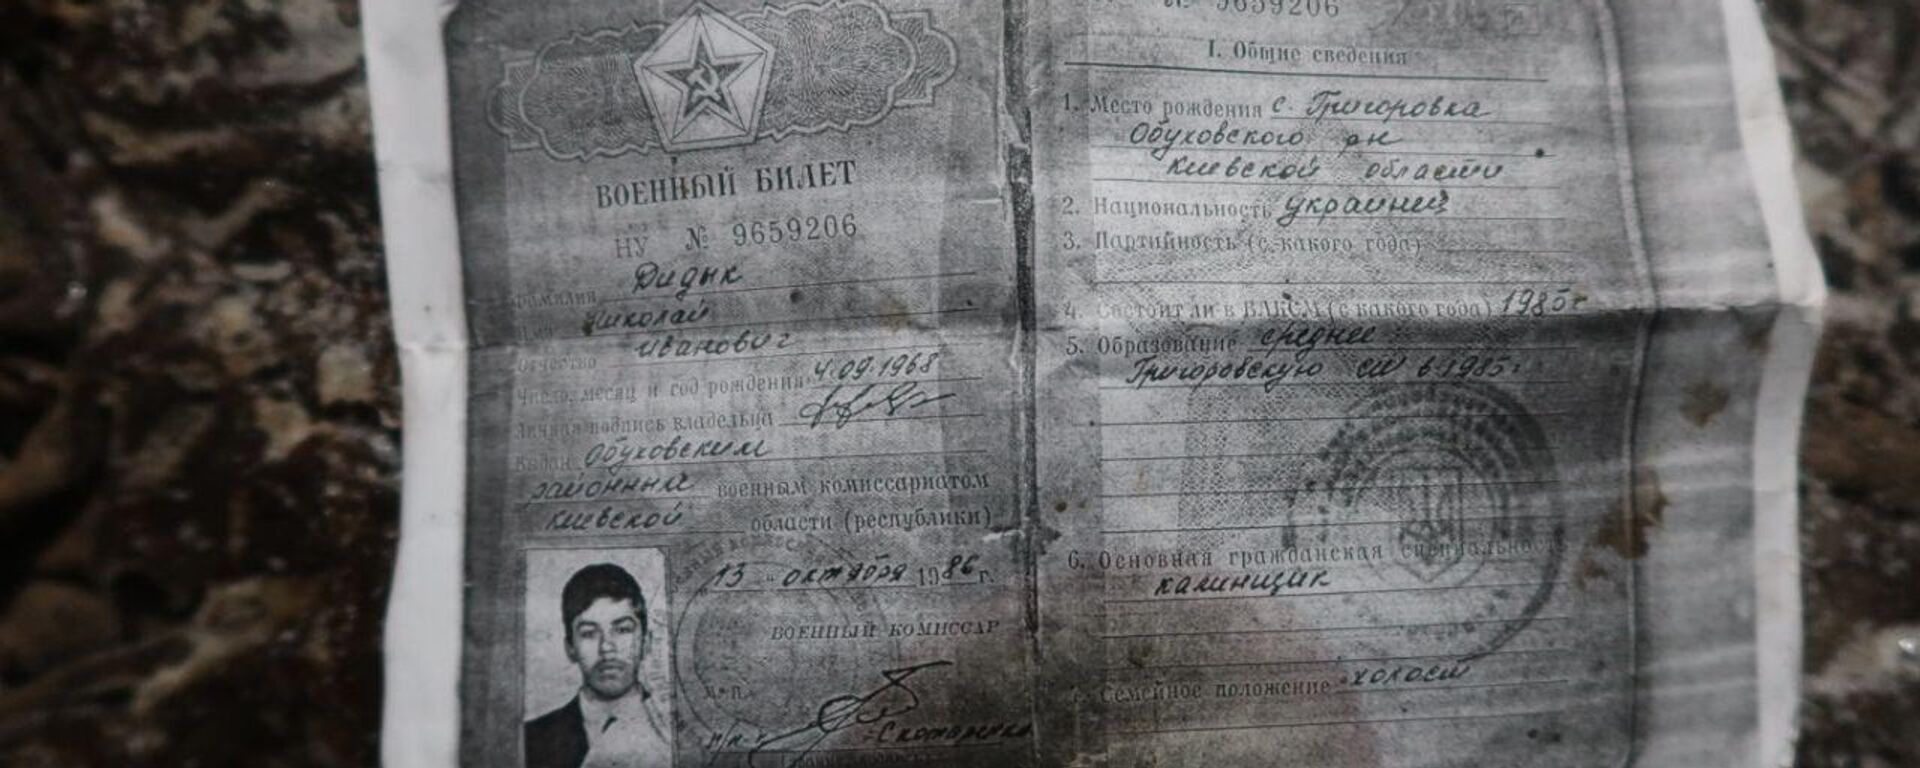 ВОЕННЫЙ БИЛЕТ
НУ № 9659206
Фамилия Дидык
Имя Николай
Отчество Иванович
Число, месяц и год рождения 4.09.1968
Личная подпись владельца
Выдан Обуховским
районным военным комиссариатом
Киевской области (республики)
13 " октября 1986 г.
ВОЕННЫЙ КОМИССАР
М. П.
№ 9659206
I. Общие сведения
1. Место рождения с. Григоровка
Обуховского рн
Киевской области
2. Национальность украинец
3. Партийность (с какого года)
4. Состоит ли в ВЛКСМ (с какого года) 1985г
5. Образование среднее
Григоровскую сш в 1985г.
6. Основная гражданская специальность
7. Семейное положение холост